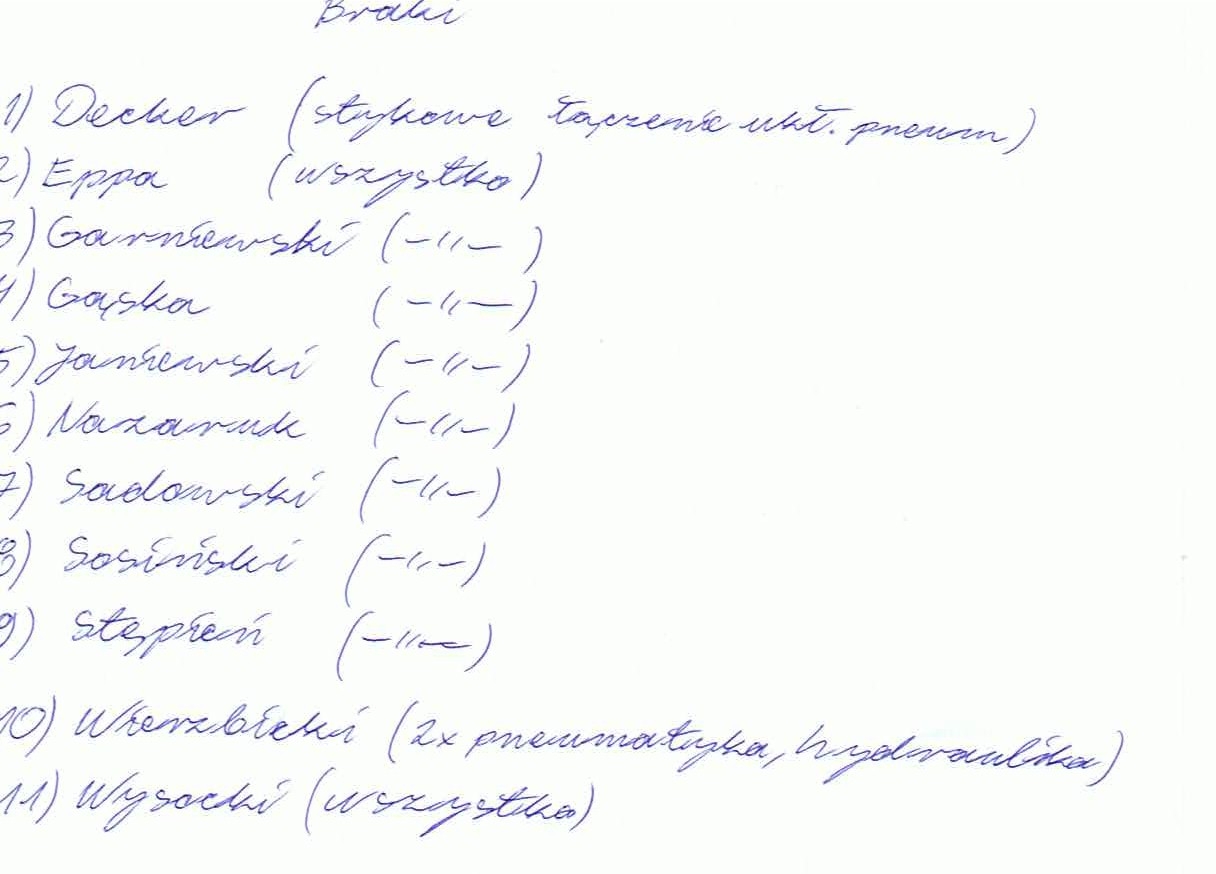 Braki
1) Decker (stykowe łączenie ukł. pneum)
2) Eppa (wszystko)
3) Garniewski (-"-)
4) Gąska (-"-)
5) Janiewski (-"-)
6) Nazaruk (-"-)
7) Sadowski (-"-)
8) Sosiński (-"-)
9) Stępień (-"-)
10) Wierzbicki (2x pneumatyka, hydraulika)
11) Wysocki (wszystko)